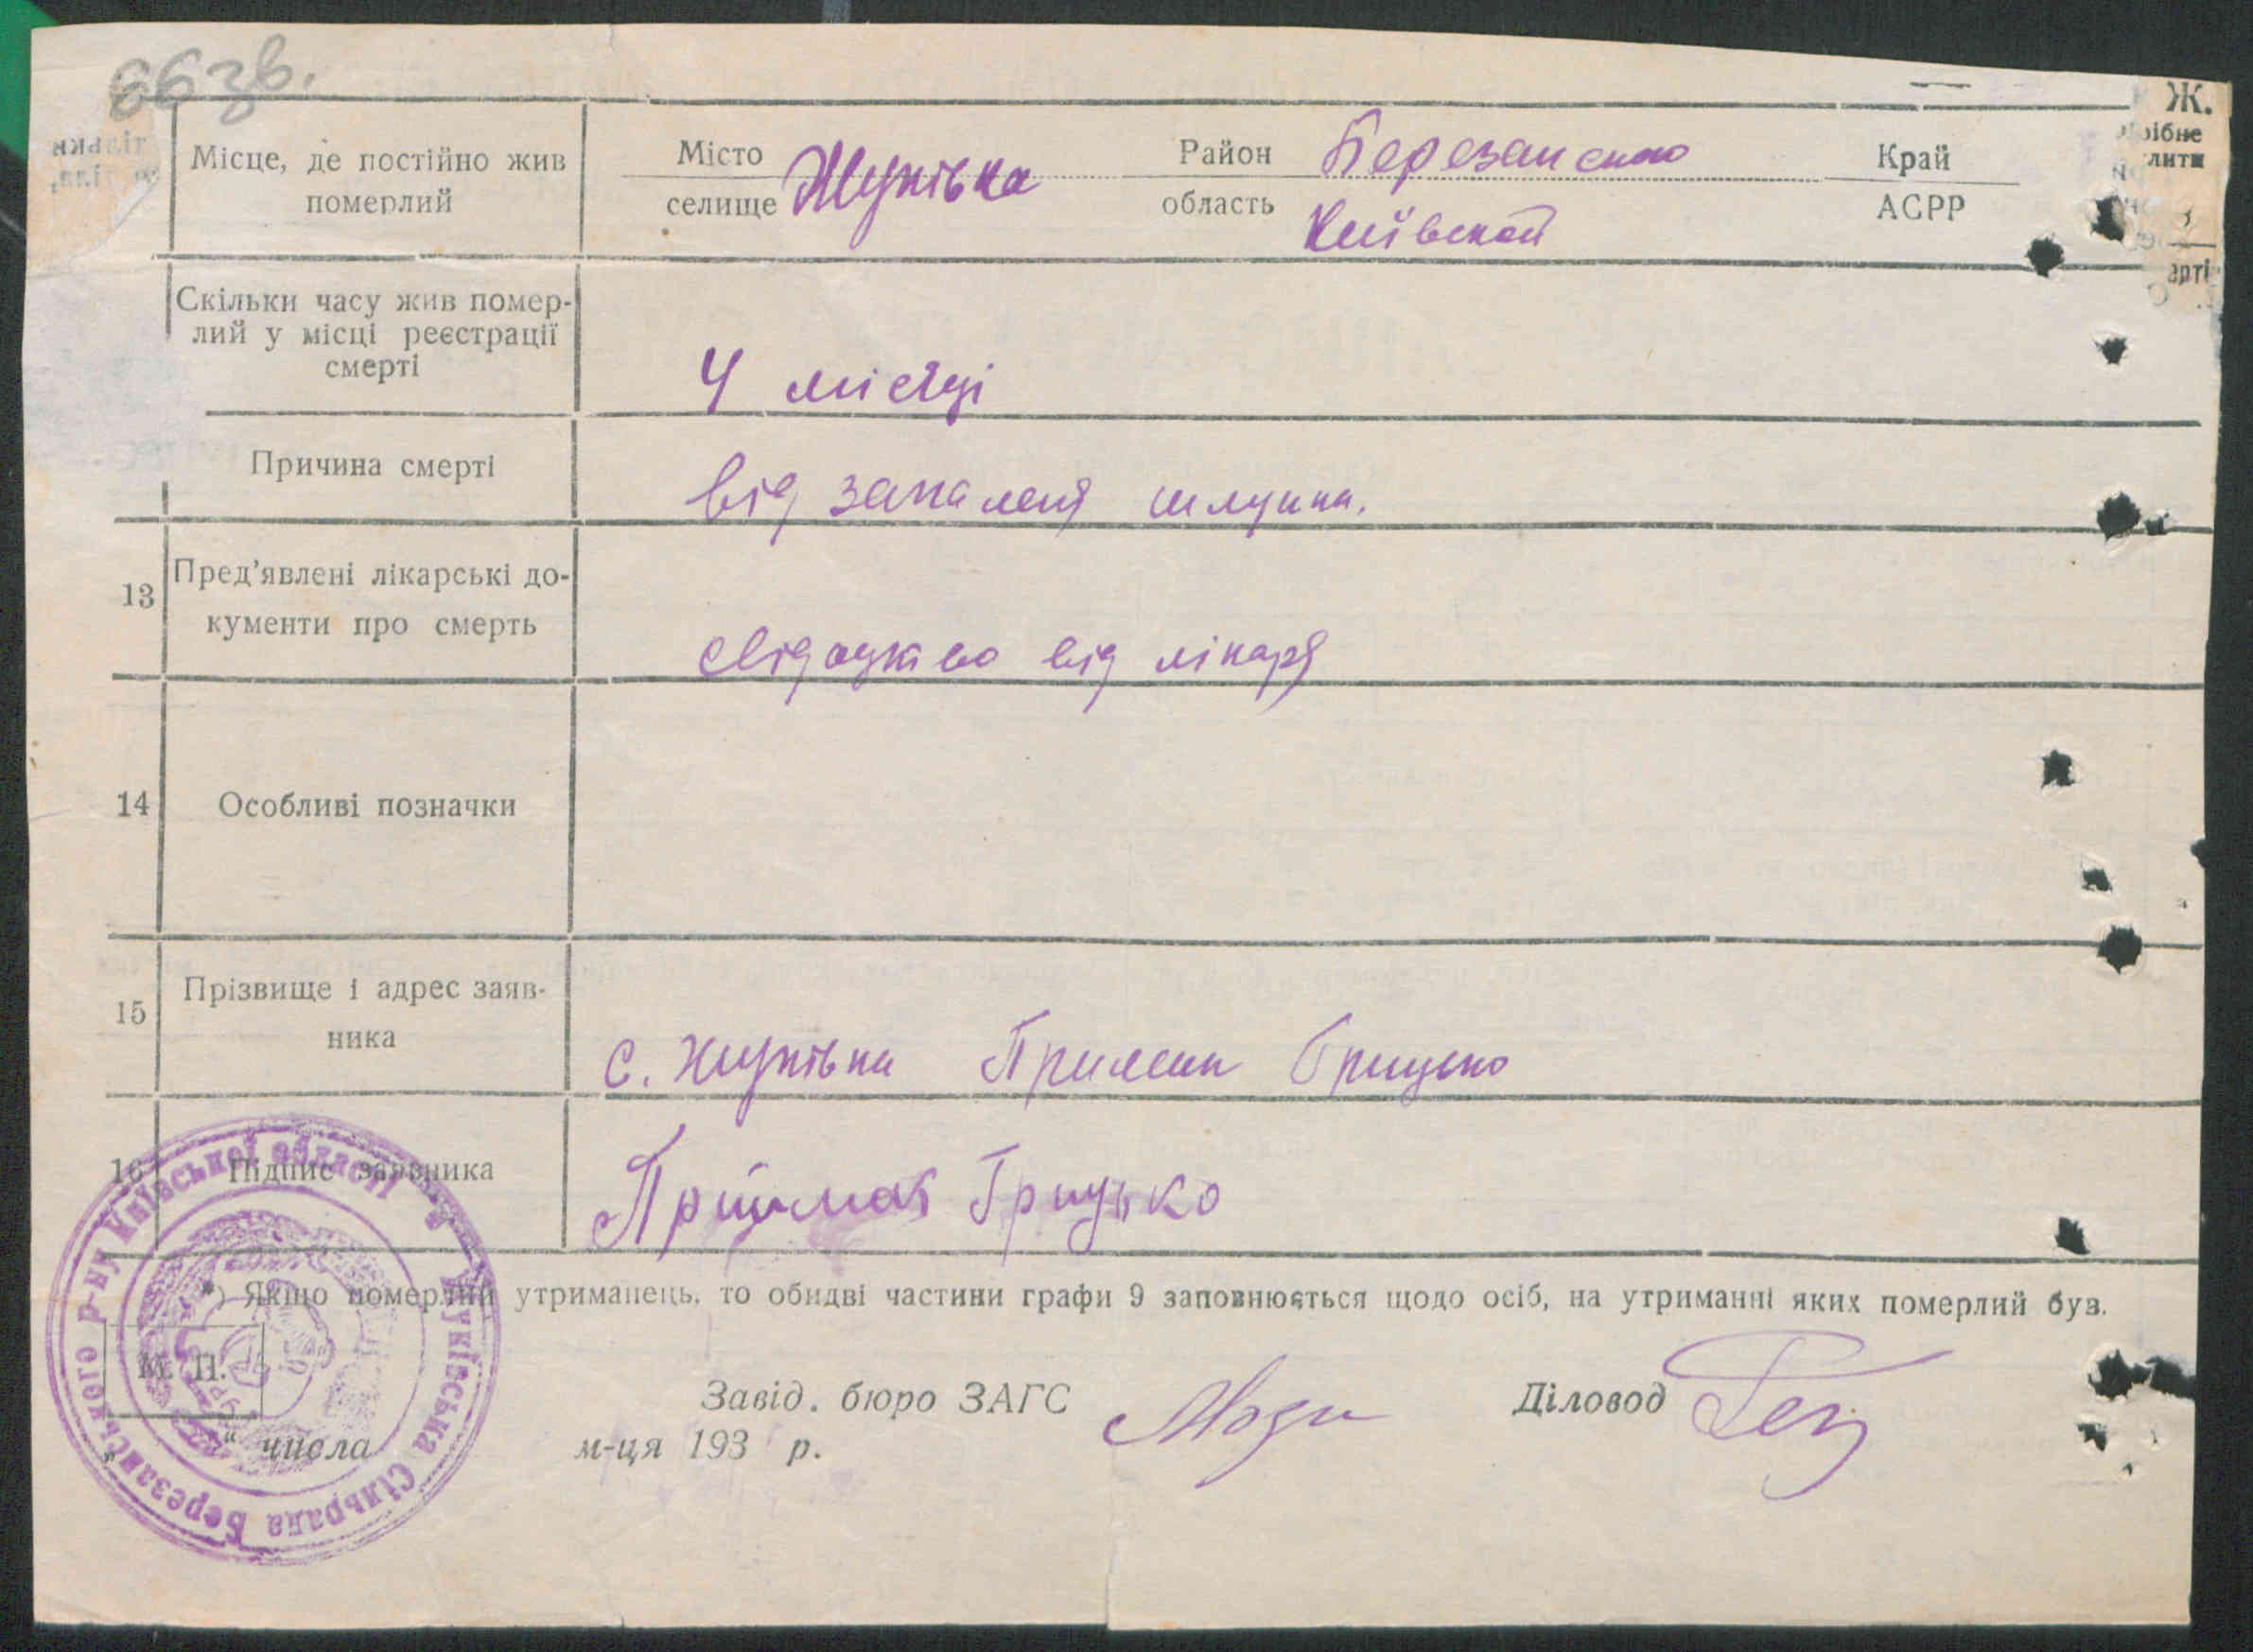 66зв.
Ж.
Місце, де постійно жив
померлий
Місто
селище
Жуківка
Район
Березанского
область
Київской
Край
АСРР
Скільки часу жив помер-
лий у місці реєстрації
смерті
4 місяці
Причина смерті
від запаленя шлунка.
13
Пред'явлені лікарські до-
кументи про смерть
свідоцтво від лікаря
14
Особливі позначки
15
Прізвище і адрес заяв-
ника
с. Жуківка Примак Грицько
16
Підпис заявника
Приймак Грицько
*) Якщо померлий утриманець, то обидві частини графи 9 заповнюється щодо осіб, на утриманні яких померлий був.
М. П.
Завід. бюро ЗАГС
Діловод
„ “ числа м-ця 193 р.
Жуківська сільрада Березанського р-ну Київської області